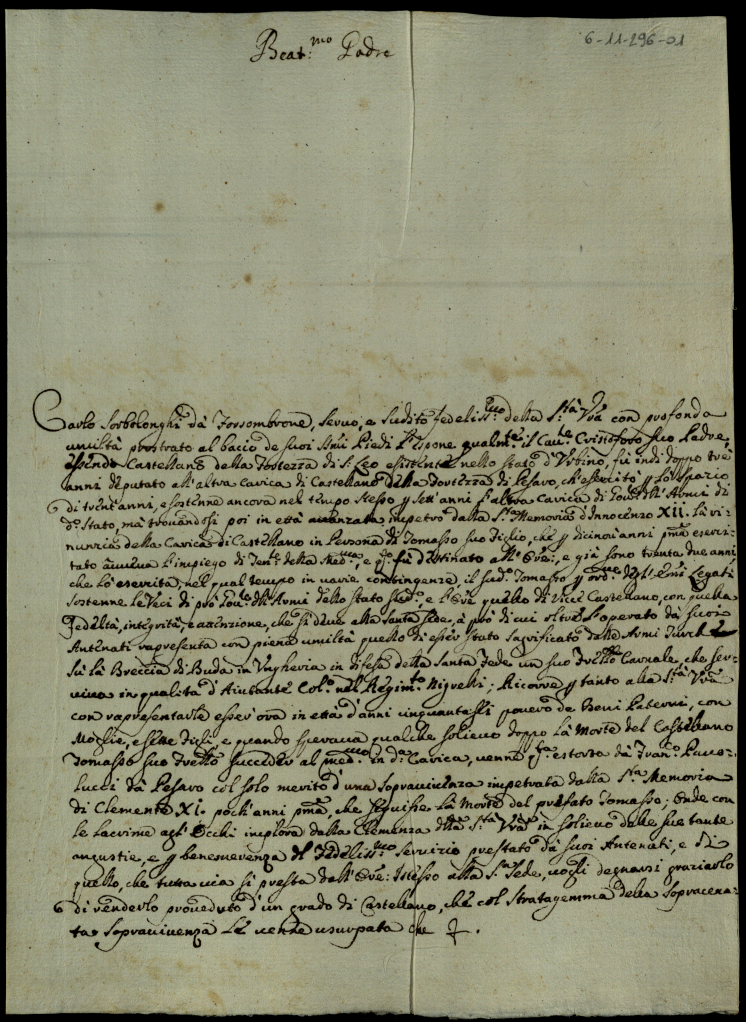 6-11-296-01
Beat:mo Padre
Carlo Sorbolonghi da Fossombrone, Servo, e Suddito fedeliss:mo della S:tà Vrã con profonda
umiltà prostrato al bacio de suoi SSmi Piedi l'Espone qualmte il Cau:re Cristoforo suo Padre,
essendo Castellano della Fortezza di S. Leo esistente nello stato d'Urbino, fù indi doppo trè
anni deputato all'altra Carica di Castellano della Fortezza di Pesaro, ch'esercitò p lo spazio
di trent'anni, e sostenne ancora nel tempo stesso p sett'anni l'altra Carica di dell'Armi di
d:o Stato, mà trouandosi poi in età auanzata impetrò dalla S:ta Memoria d'Innocenzo XII. la ri-
nunzia della Carica di Castellano in Persona di Tomasso suo Figlio, che p dicinou'anni pma eserci-
tato aueua l'impiego di Tente della Med:ma, e fù destinato all'Ore:, e già sono trenta due anni,
che lo esercita, nel qual tempo in uarie contingenze, il sud:o Tomasso p ord:ne degl'Emi Legati
sostenne le Veci di dell'Armi dello stato sud:o, e l'Ore quello di Vice Castellano, con quella
Fedeltà, integrità, e attenzione, che si deue alla Santa Sede, à piè di cui oltre l'operato dà suoi
Antenati rapresenta con piena umiltà quello di esser stato sagrificato dalle Armi Turche
sù la Breccia di Buda in Vngheria in difesa della Santa Fede un suo Frello Carnale, che ser-
uiua in qualità d'Aiutante Col:o nel Regim:to Nigrelli; Ricorre p tanto alla S:tà Vrã
con rapresentarle esser'ora in età d'anni cinquantasei pouero de Beni Paterni, con
Moglie, e sette Figli, e quando speraua qualche solieuo doppo la Morte del Castellano
Tomasso suo Frello succeder al med:mo in d:a Carica, uenne estorta dà Fran:co Pucce-
lucci dà Pesaro col solo merito d'una Soprauiuenza impetrata dalla S:ta Memoria
di Clemente XI. poch'anni pma, che seguisse la Morte del prefato Tomasso; Onde con
le lacrime agl'Occhi implora dalla Clemenza della S:tà Vrã in solieuo delle sue tante
angustie, e p benemerenza del Fedeliss:mo Seruizio prestato dà suoi Antenati, e di
quello, che tutta uia si presta dall'Ore: Istesso alla S:ta Sede, uogli degnarsi graziarlo
di renderlo proueduto d'un grado di Castellano, che col Stratagemma della sopracena-
ta Soprauiuenza le uenne usurpata che